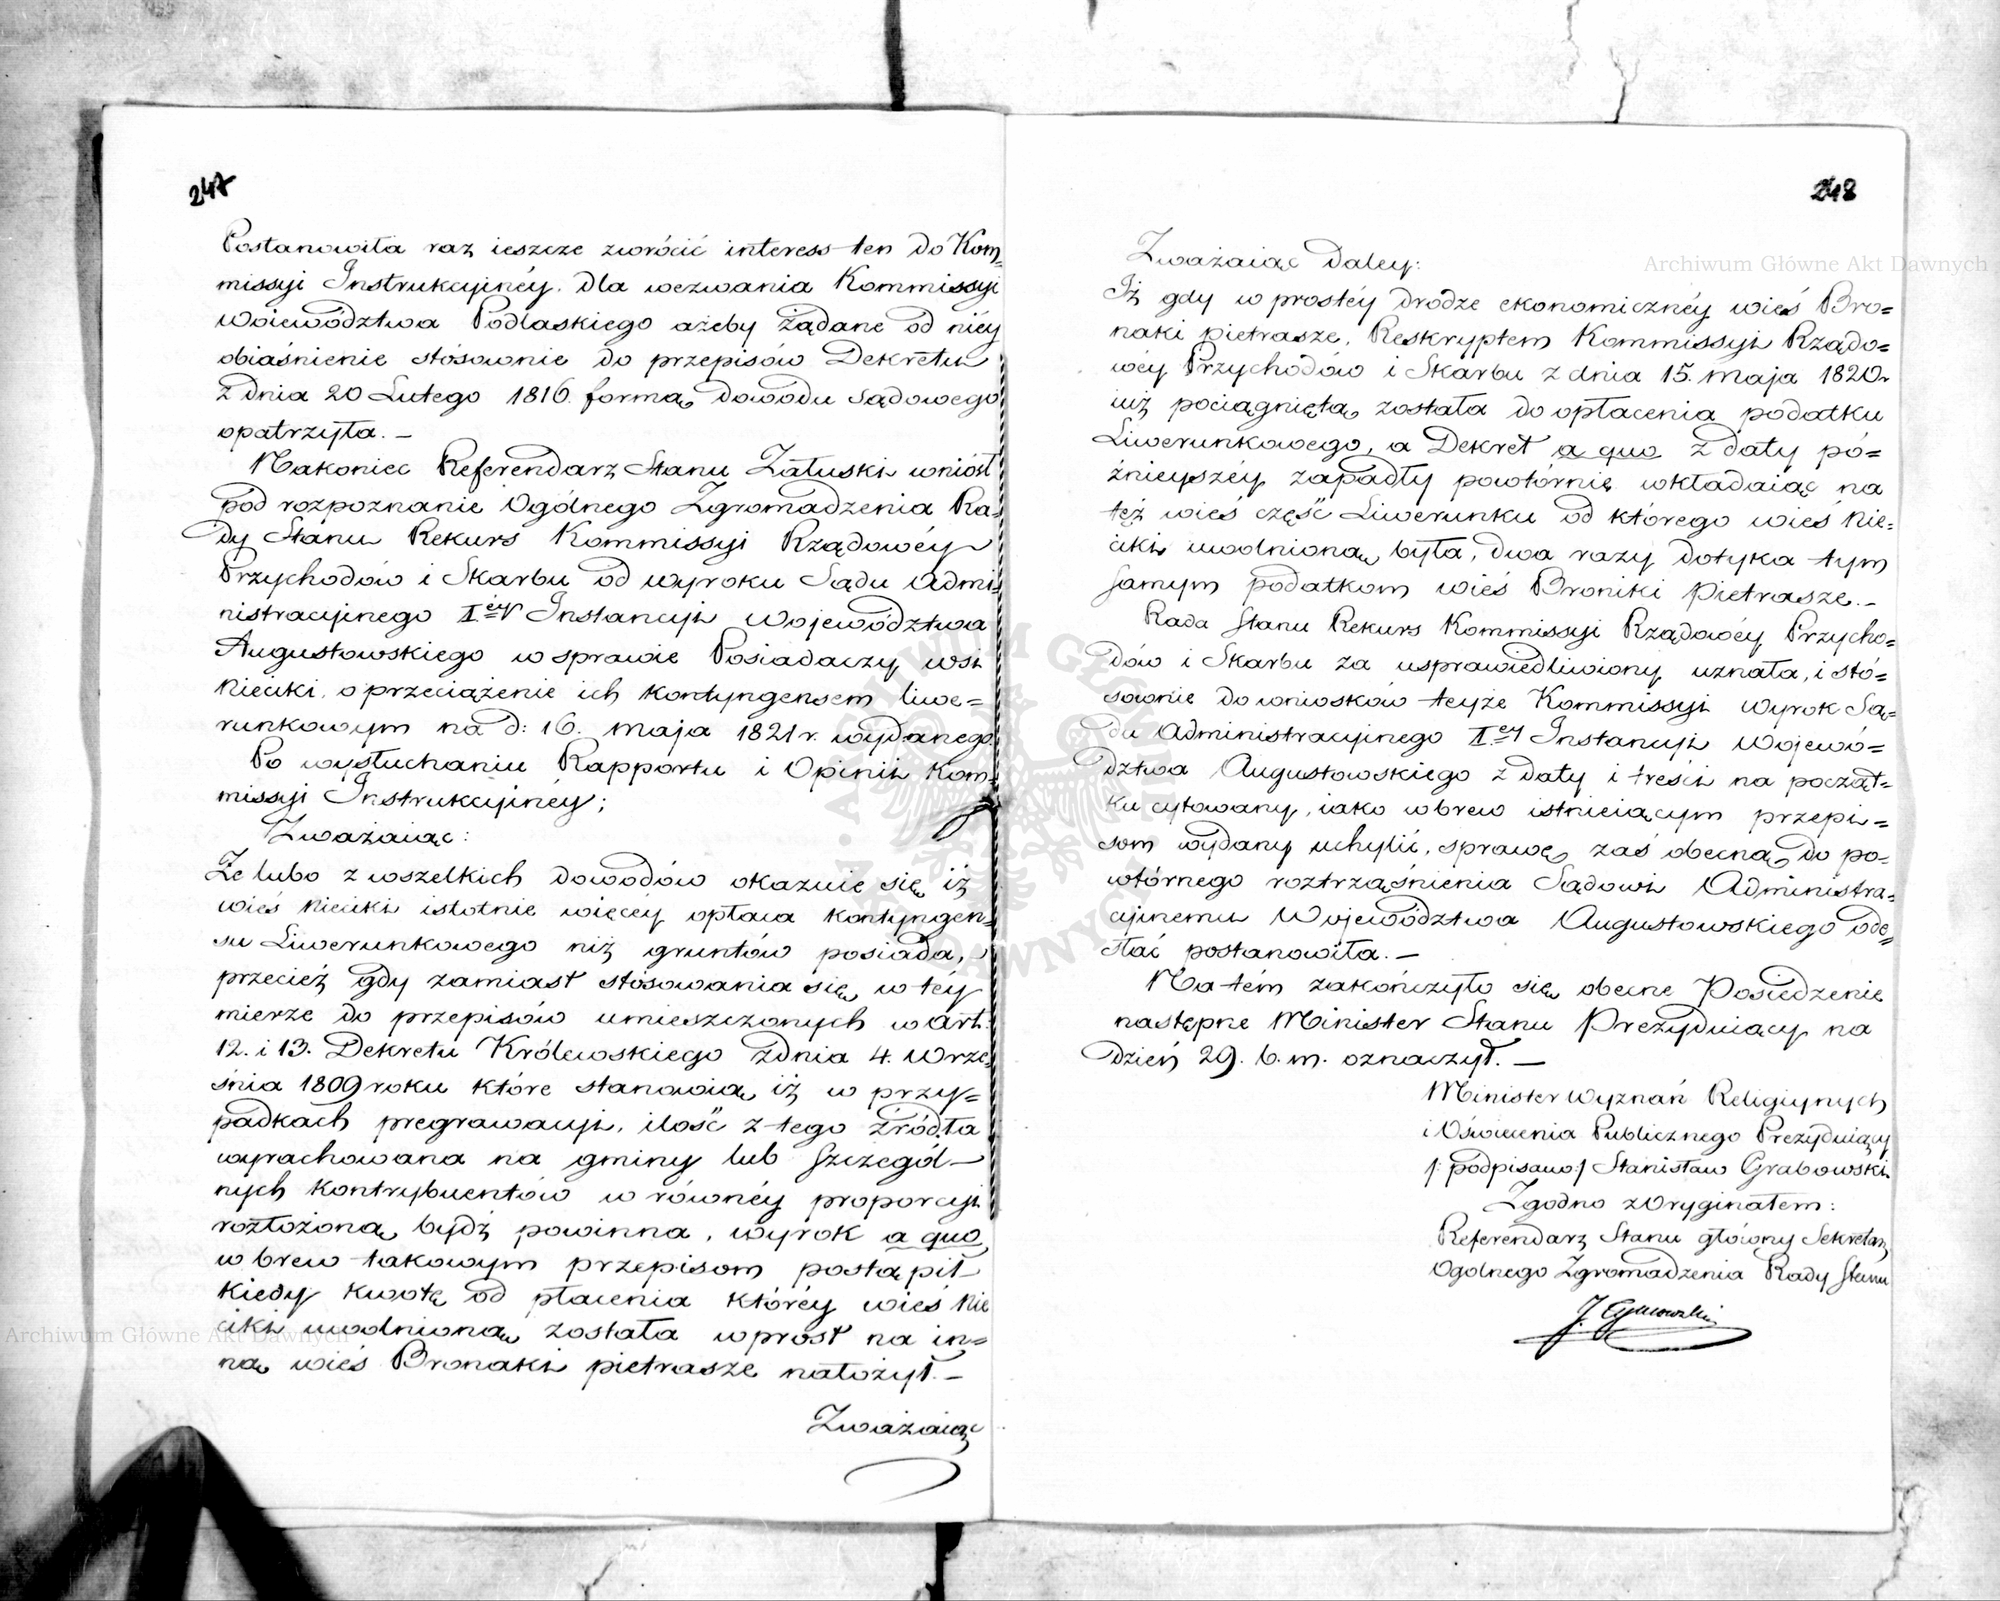 247
Postanowiła raz ieszcze zwrócić interess ten do Kom=
missyi Instrukcyinéy. dla wezwania Kommissyi
Woiewództwa Podlaskiego ażeby żądane od niéy
obiaśnienie stósownie do przepisów Dekretu
z dnia 20 Lutego 1816. formą dowodu sądowego
opatrzyła. —
Nakoniec Referendarz Stanu Załuski wniósł
pod rozpoznanie Ogólnego Zgromadzenia Ra=
dy Stanu Rekurs Kommissyi Rządowéy
Przychodów i Skarbu od wyroku Sądu Admi=
nistracyjnego I.éy Instancyi Województwa
Augustowskiego w sprawie Posiadaczy wsi
Niećki, o przeciążenie ich kontyngensem liwe=
runkowym na d: 16. Maja 1821 r. wydanego.
Po wysłuchaniu Rapportu i Opinii Kom=
missyi Instrukcyinéy;
Zważaiąc:
Że lubo z wszelkich dowodów okazuie się, iż
wieś Niećki istotnie więcéy opłaca kontyngen=
su Liwerunkowego niż gruntów posiada,
przecież gdy zamiast stósowania się w téy
mierze do przepisów umieszczonych w Art:
12. i 13. Dekretu Królewskiego z dnia 4. Wrze=
śnia 1809 roku które stanowią, iż w przy=
padkach pregrawacyi, ilość z tego źródła
wyrachowana na gminy lub szczegól—
nych kontrybuentów w równéy proporcyi
rozłożoną bydź powinna, wyrok a quo,
wbrew takowym przepisom postąpił
kiedy kwotę od płacenia któréy wieś Nie
ćki uwolnioną została wprost na in=
ną wieś Bronaki pietrasze nałożył. —
Zważaiąc
248
Zważaiąc daley:
Iż gdy w prostéy drodze ekonomicznéy wieś Bro=
naki pietrasze, Reskryptem Kommissyi Rządo=
wéy Przychodów i Skarbu z dnia 15. Maja 1820 r
iuż pociągniętą została do opłacenia podatku
Liwerunkowego, a Dekret a quo z daty pó=
źnieyszéy zapadły powtórnie wkładaiąc na
też wieś część Liwerunku od którego wieś Nie=
ćki uwolnioną była, dwa razy dotyka tym
samym podatkom wieś Broniki Pietrasze. —
Rada Stanu Rekurs Kommissyi Rządowéy Przycho=
dów i Skarbu za usprawiedliwiony uznała, i stó=
sownie do wniosków teyże Kommissyi wyrok Są=
du Administracyjnego I.éy Instancyi Wojewó=
dztwa Augustowskiego z daty i treści na począt=
ku cytowany, iako wbrew istnieiącym przepi=
som wydany uchylić, sprawę zaś obecną do po=
wtórnego roztrząśnienia Sądowi Administra=
cyjnemu Województwa Augustowskiego ode=
słać postanowiła. —
Na tém zakończyło się obecne Posiedzenie
następne Minister Stanu Prezyduiący na
dzień 29. b. m. oznaczył. —
Minister Wyznań Religiynych
i Oświecenia Publicznego Prezyduiący
/: podpisano :/ Stanisław Grabowski
Zgodno z Oryginałem:
Referendarz Stanu główny Sekretarz
Ogolnego Zgromadzenia Rady Stanu
Archiwum Główne Akt Dawnych
Archiwum Główne Akt Dawnych